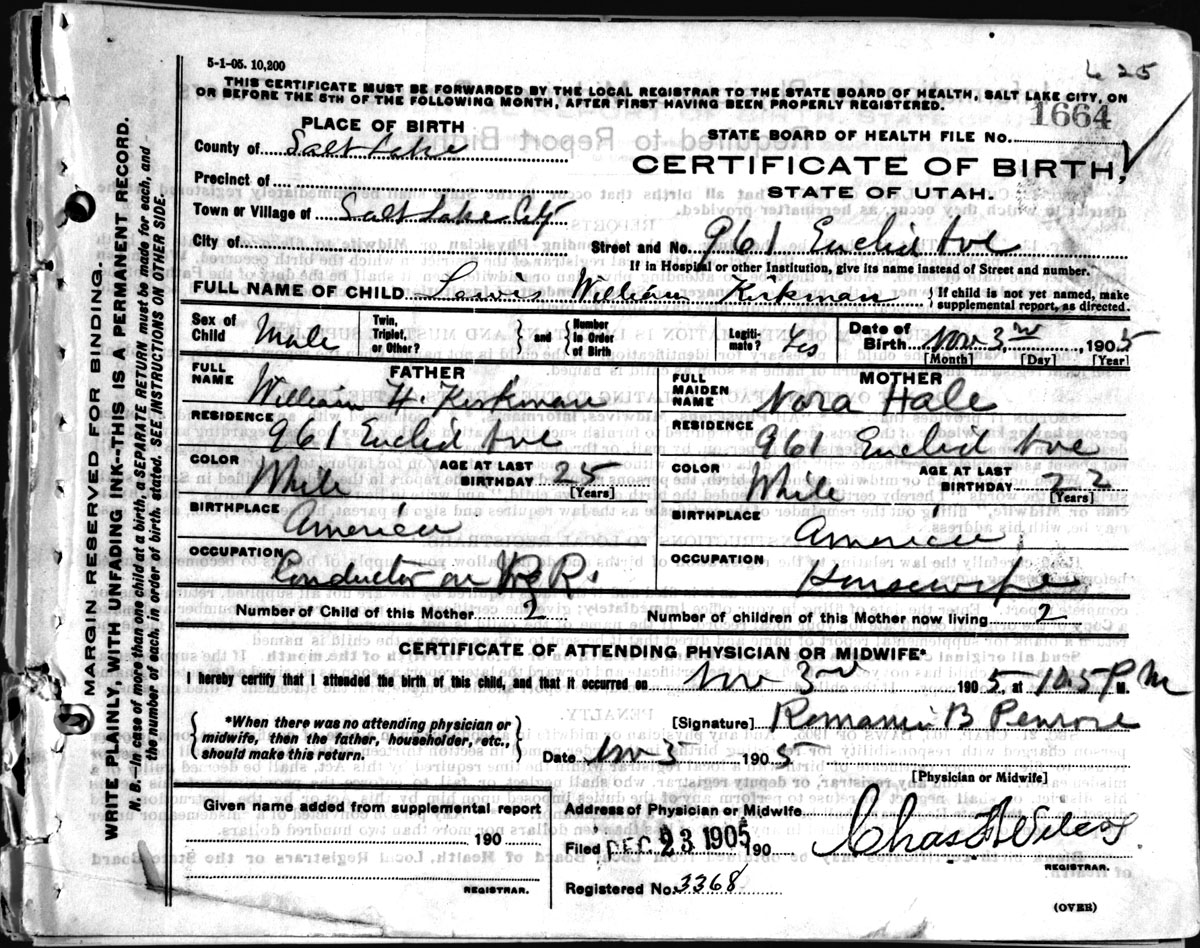 5-1-05. 10,200
625
THIS CERTIFICATE MUST BE FORWARDED BY THE LOCAL REGISTRAR TO THE STATE BOARD OF HEALTH, SALT LAKE CITY, ON
OR BEFORE THE 5TH OF THE FOLLOWING MONTH, AFTER FIRST HAVING BEEN PROPERLY REGISTERED.
PLACE OF BIRTH
STATE BOARD OF HEALTH FILE NO. 1664
County of Salt Lake
CERTIFICATE OF BIRTH,
Precinct of
STATE OF UTAH.
Town or Village of Salt Lake City
City of
Street and No. 961 Euclid Ave
If in Hospital or other Institution, give its name instead of Street and number.
FULL NAME OF CHILD Lewis William Kirkman { If child is not yet named, make supplemental report, as directed.
Sex of Child Male
Twin, Triplet, or Other? } and { Number In Order of Birth
Legiti- mate? Yes
Date of Birth Nov 3rd, 1905
[Month] [Day] [Year]
FATHER
FULL NAME William H Kirkman
RESIDENCE 961 Euclid Ave
COLOR White AGE AT LAST BIRTHDAY 25
[Years]
BIRTHPLACE America
OCCUPATION Conductor on R
MOTHER
FULL MAIDEN NAME Nora Hale
RESIDENCE 961 Euclid Ave
COLOR White AGE AT LAST BIRTHDAY 22
[Years]
BIRTHPLACE America
OCCUPATION Housewife
Number of Child of this Mother 2
Number of children of this Mother now living 2
CERTIFICATE OF ATTENDING PHYSICIAN OR MIDWIFE*
I hereby certify that I attended the birth of this child, and that it occurred on Nov 3rd 1905, at P M.
{ *When there was no attending physician or
midwife, then the father, householder, etc.,
should make this return. }
[Signature] Romania B Penrose
Date Nov 5 1905
[Physician or Midwife]
Given name added from supplemental
report
190
REGISTRAR.
Address of Physician or Midwife
Filed DEC 23 1905 190
Chas
REGISTRAR.
Registered No. 3368
(OVER)
MARGIN RESERVED FOR BINDING.
WRITE PLAINLY, WITH UNFADING INK--THIS IS A PERMANENT RECORD.
N. B.--In case of more than one child at a birth, a SEPARATE RETURN must be made for each, and
the number of each, in order of birth, stated. SEE INSTRUCTIONS ON OTHER SIDE.